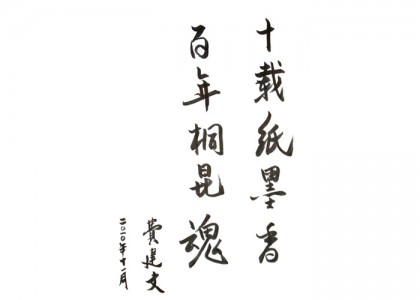 十载纸墨香
百年桐昆魂
费建文
二〇一〇年十一月